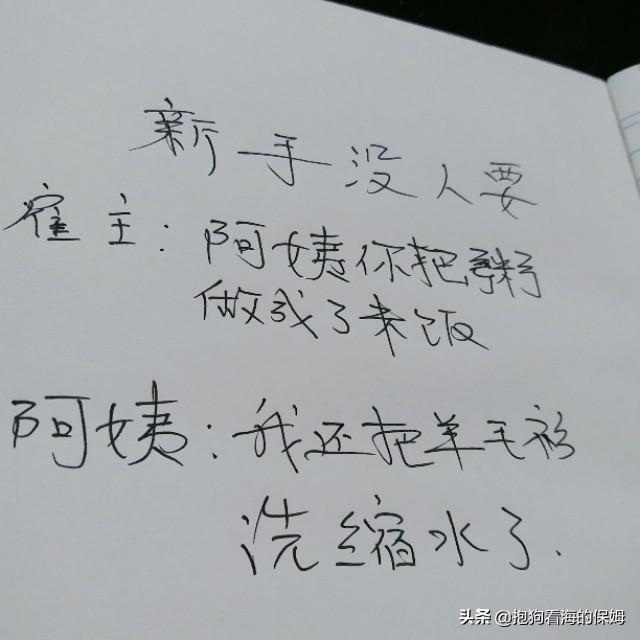 新手没人要
雇主：阿姨你把粥
做成了米饭
阿姨：我还把羊毛衫
洗缩水了.
头条 @抱狗看海的保姆